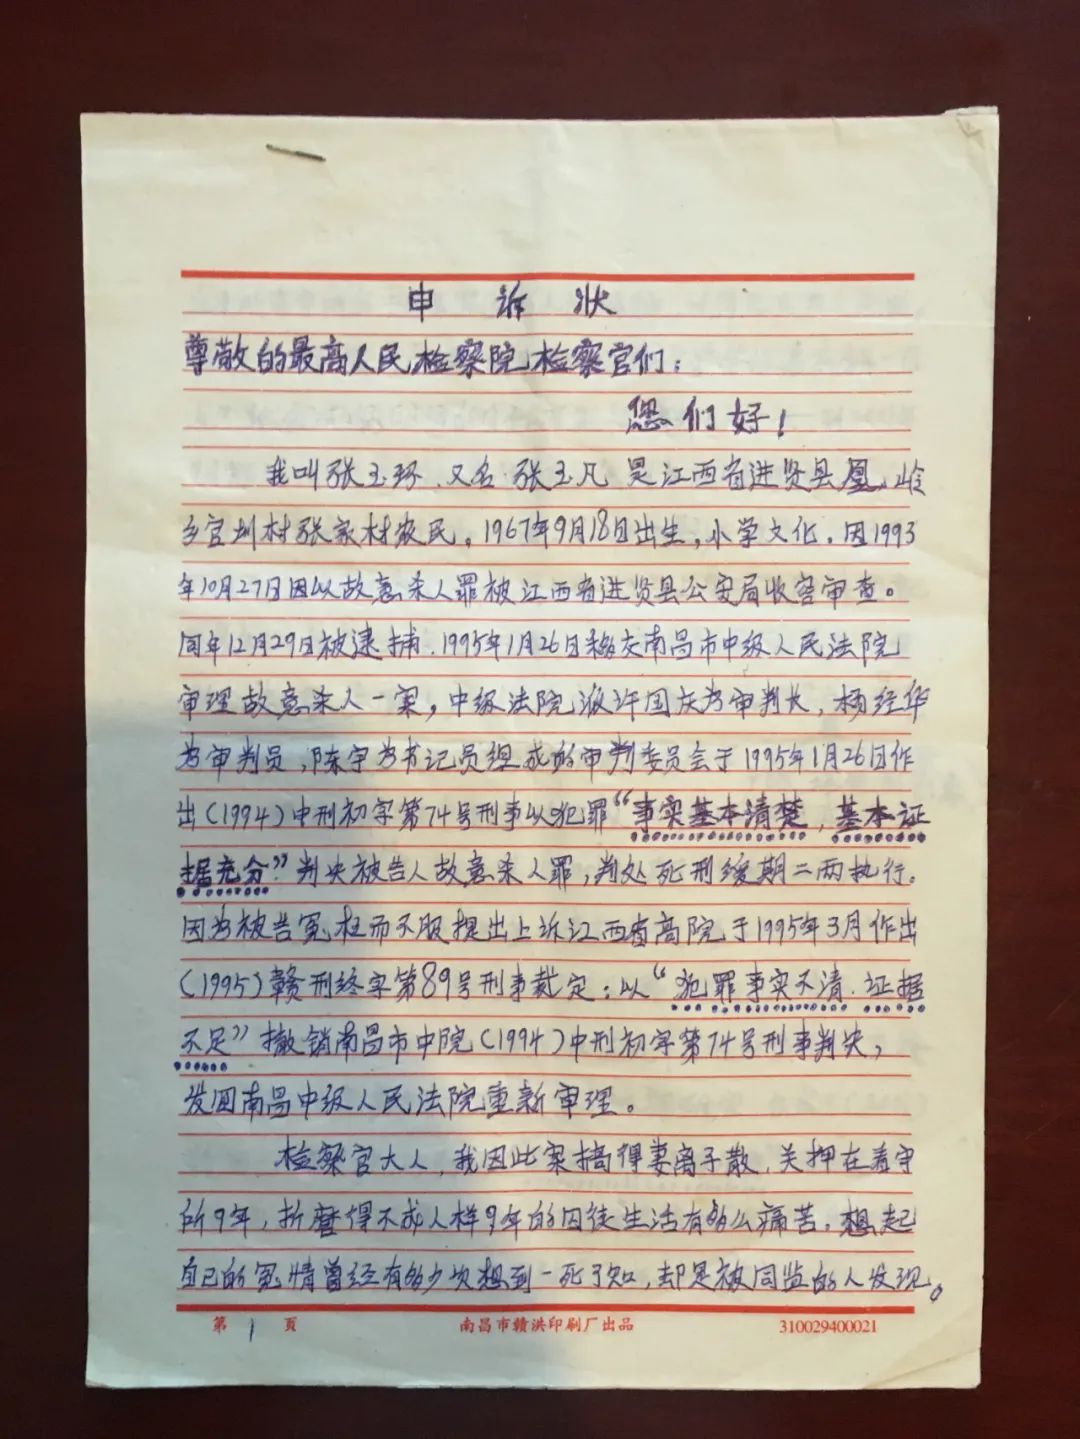 申诉状
尊敬的最高人民检察院检察官们：
您们好！
我叫张玉环、又名·张玉凡 是江西省进贤县凰岭
乡官圳村张家村农民。1967年9月18日出生，小学文化。因1993
年10月27日因以故意杀人罪被江西省进贤县公安局收容审查。
同年12月29日被逮捕.1995年1月26日移交南昌市中级人民法院
审理故意杀人一案，中级法院派许国庆为审判长，杨经华
为审判员，陈宇为书记员组成的审判委员会于1995年1月26日作
出(1994)中刑初字第74号刑事以犯罪“事实基本清楚，基本证
据充分”判决被告人故意杀人罪，判处死刑缓期二两执行。
因为被告冤枉而不服提出上诉江西省高院于1995年3月作出
(1995)赣刑终字第89号刑事裁定：以“犯罪事实不清.证据
不足”撤销南昌市中院(1994)中刑初字第74号刑事判决，
发回南昌中级人民法院重新审理。
检察官大人，我因此案搞得妻离子散.关押在看守
所9年，折磨得不成人样9年的囚徒生活有多么痛苦，想起
自己的冤情曾经有多少次想到一死了知，却是被同监的人发现。
第1页
南昌市赣洪印刷厂出品
310029400021